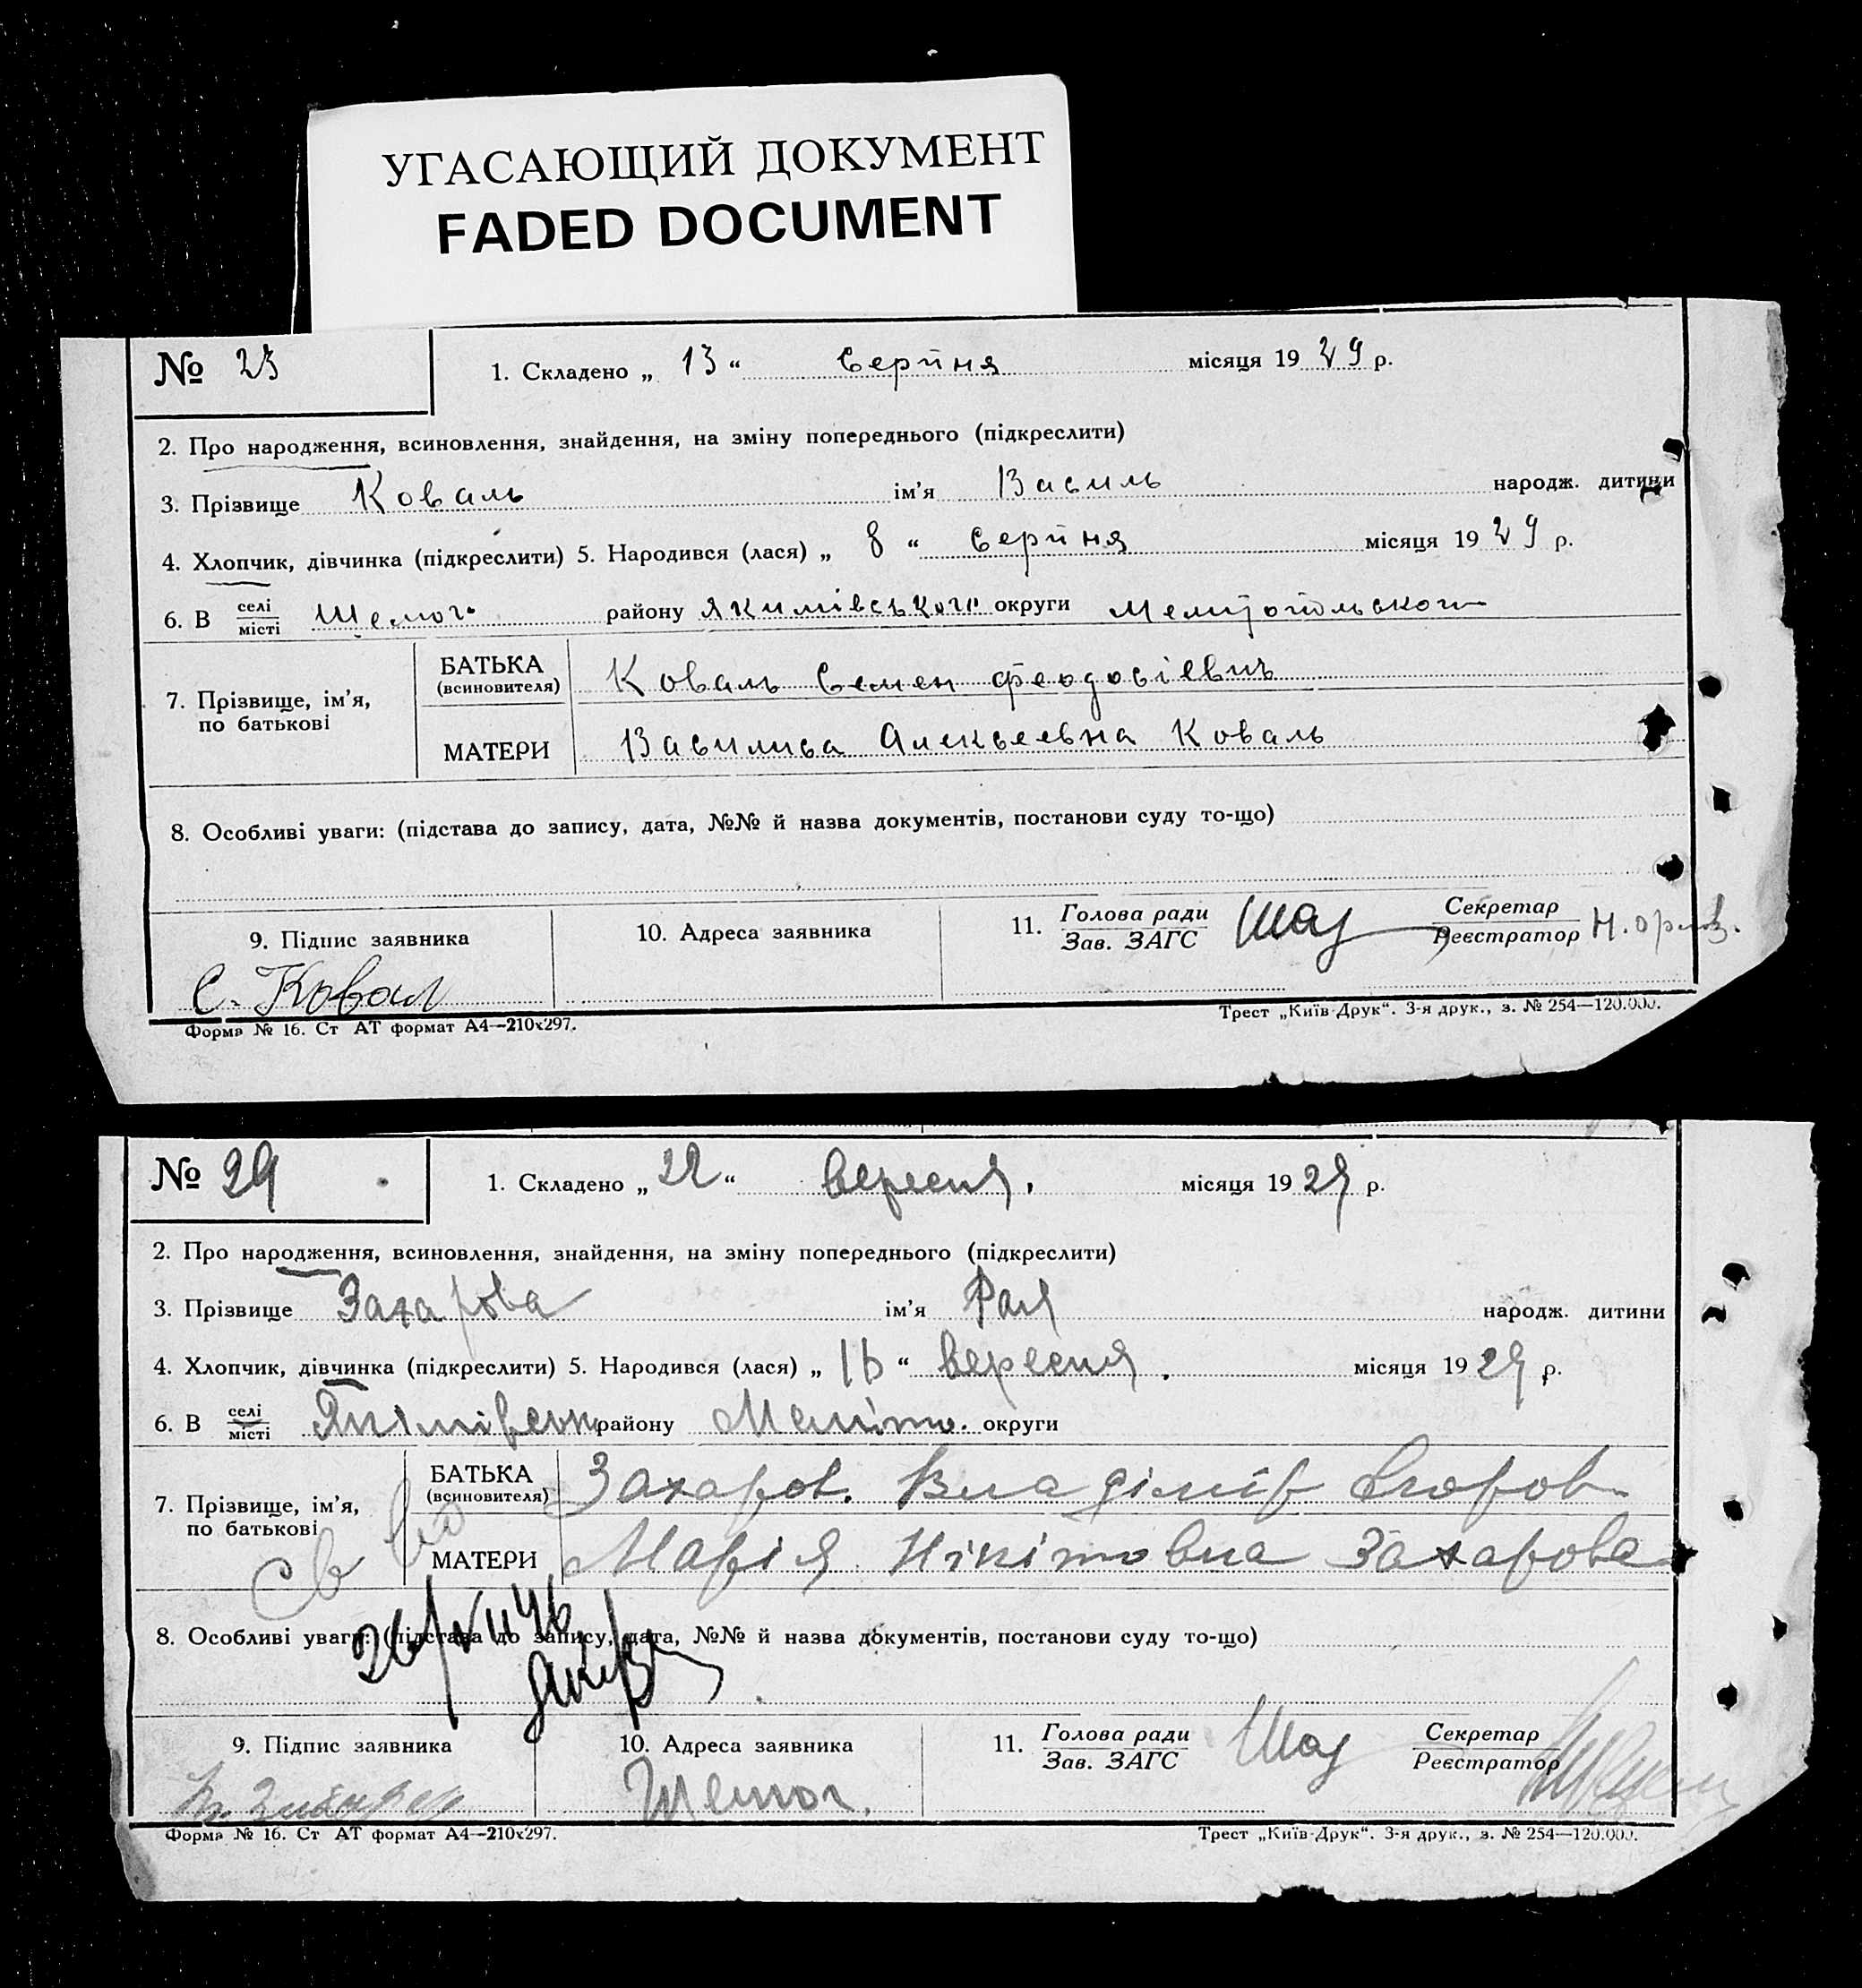 УГАСАЮЩИЙ ДОКУМЕНТ
FADED DOCUMENT
№ 23 1. Складено „ 13 “ Серпня місяця 19 29 р.
2. Про народження, всиновлення, знайдення, на зміну попереднього (підкреслити)
3. Прізвище Коваль ім’я Василь народж. дитини
4. Хлопчик, дівчинка (підкреслити) 5. Народився (лася) „ 8 “ Серпня місяця 19 29 р.
6. В селі місті Шемог району Якимівського округи Мелитопольского
7. Прізвище, ім’я, по батькові
БАТЬКА (всиновителя) Коваль Семен Феодосіевич
МАТЕРИ Василиса Алексеевна Коваль
8. Особливі уваги: (підстава до запису, дата, №№ й назва документів, постанови суду то-що)
9. Підпис заявника 10. Адреса заявника 11. Голова ради Зав. ЗАГС Секретар Реєстратор
С. Ковал
Форма № 16. Ст АТ формат А4—210х297. Трест „Київ-Друк“. 3-я друк., з. № 254—120.000.
№ 29 1. Складено „ 22 “ вересня. місяця 19 29 р.
2. Про народження, всиновлення, знайдення, на зміну попереднього (підкреслити)
3. Прізвище Захарова ім’я Рая народж. дитини
4. Хлопчик, дівчинка (підкреслити) 5. Народився (лася) „ 16 “ вересня. місяця 19 29 р.
6. В селі місті району Меліто. округи
7. Прізвище, ім’я, по батькові
БАТЬКА (всиновителя) Захаров. Владімір Егоров
МАТЕРИ Марія Нікітовна Захарова
8. Особливі уваги: (підстава до запису, дата, №№ й назва документів, постанови суду то-що)
9. Підпис заявника 10. Адреса заявника 11. Голова ради Зав. ЗАГС Секретар Реєстратор
Шемог.
Форма № 16. Ст АТ формат А4—210х297. Трест „Київ-Друк“. 3-я друк., з. № 254—120.000.